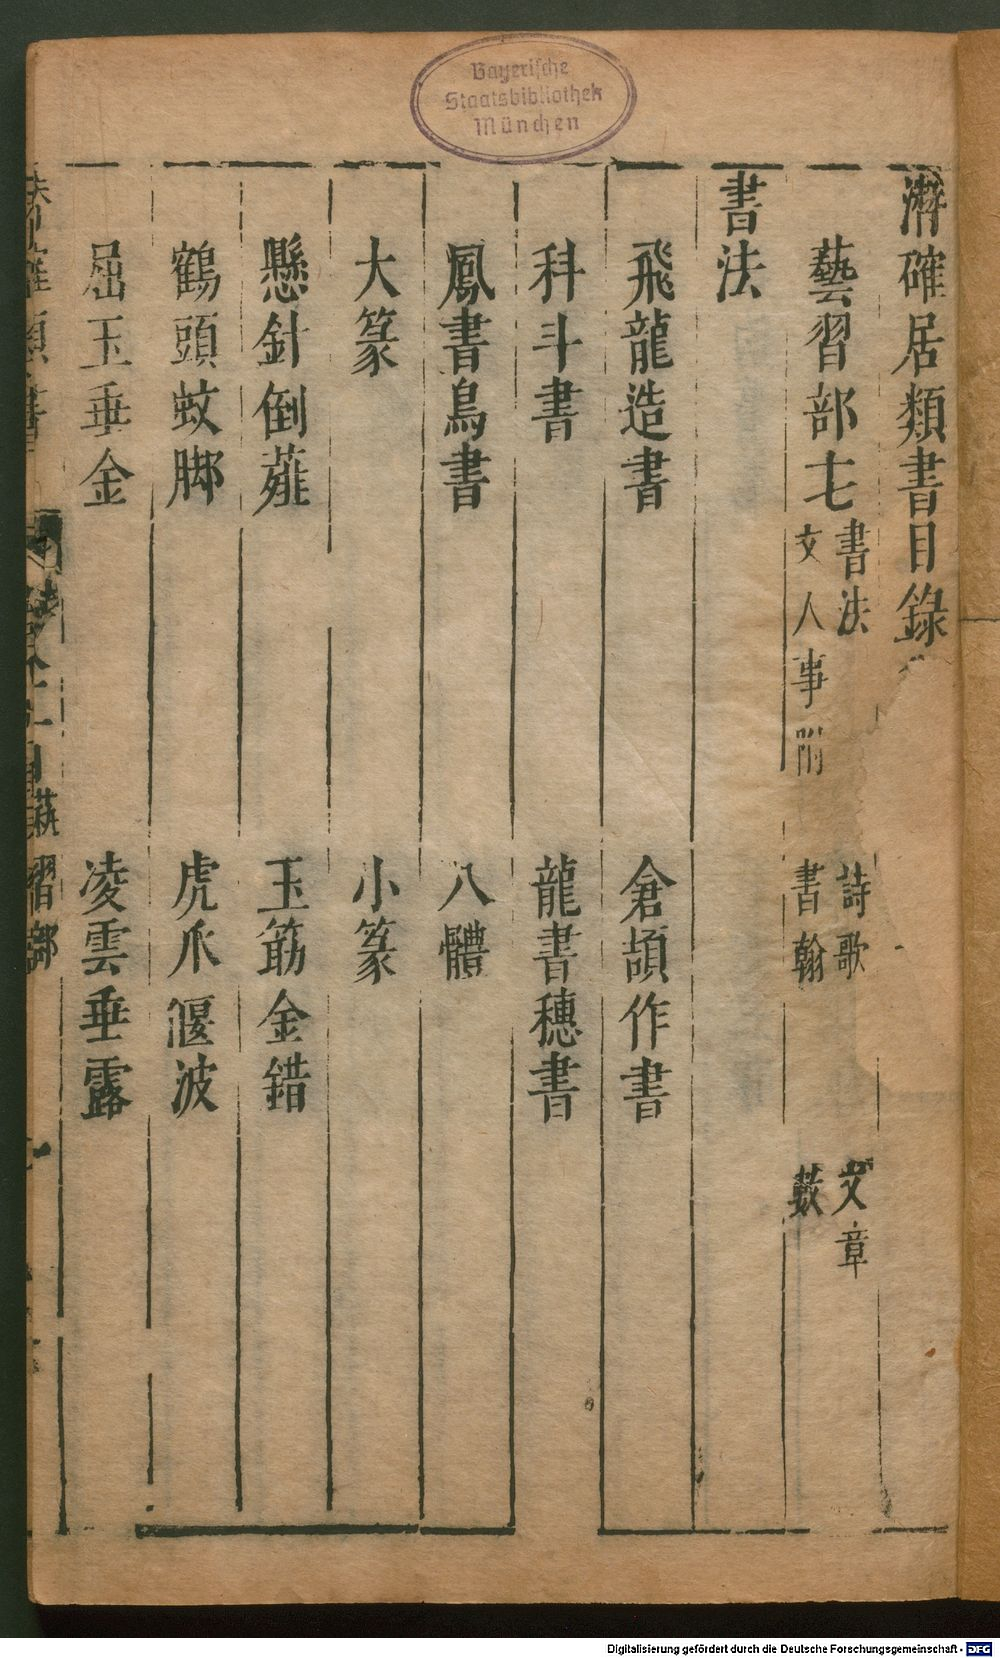 Bayerische
Staatsbibliothek
München
潛確居類書目錄
藝習部七
書法 詩歌 文章
文人事附 書翰 藪
書法
飛龍造書 倉頡作書
科斗書 龍書穗書
鳳書鳥書 八體
大篆 小篆
懸針倒薤 玉筯金錯
鶴頭蚊脚 虎爪偃波
屈玉垂金 凌雲垂露
藝習部
Digitalisierung gefördert durch die Deutsche Forschungsgemeinschaft - DFG